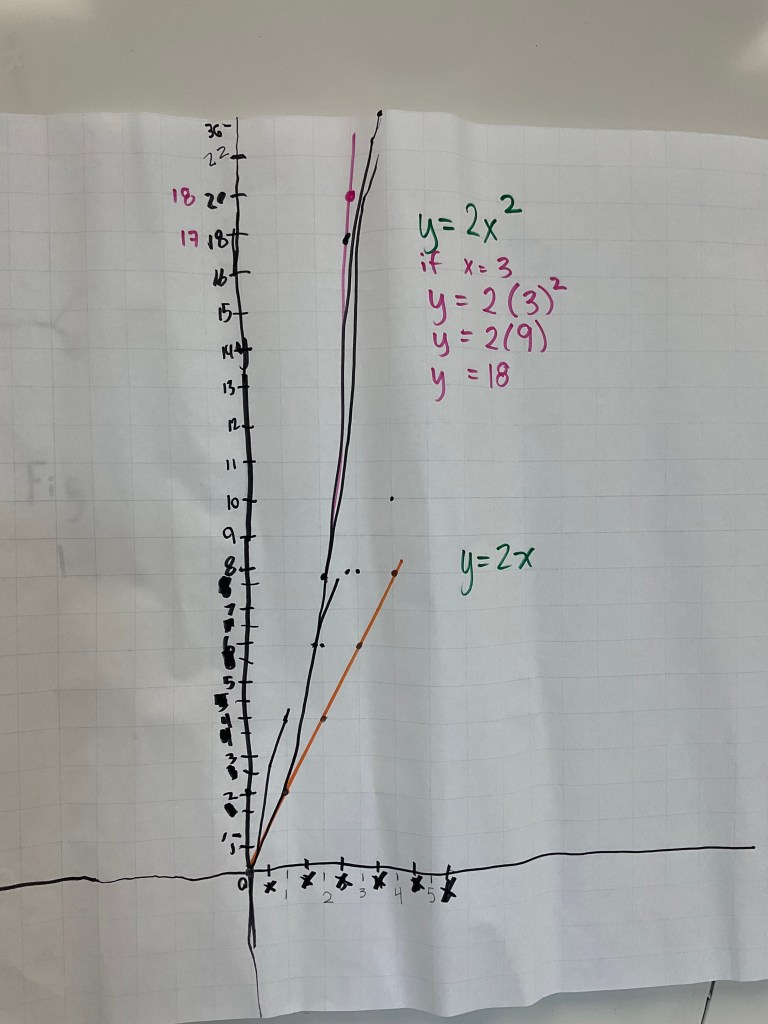 36
22
18 20
17 18
16
15
14
13
12
11
10
9
8
7
6
5
4
3
2
1
0 1 2 3 4 5
y=2x²
if x=3
y=2(3)²
y=2(9)
y=18
y=2x